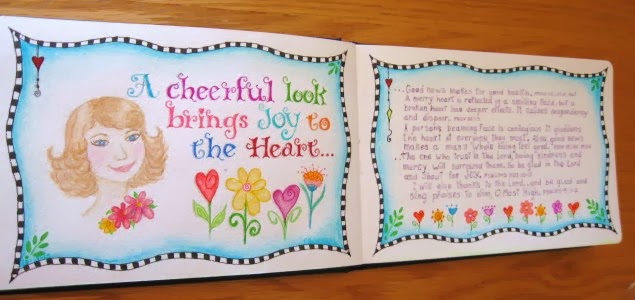 A cheerful look
brings Joy to
the Heart...
...Good news makes for good health,
A merry heart is reflected in a smiling face, but a
broken heart has deeper effects. It causes despondency
and despair,
A person's beaming face is contagious. It gladdens
the heart of everyone they meet. Also, good news
makes a man's whole being feel good.
...The one who trust in the Lord, loving kindness and
mercy will surround them. So be glad in the Lord
and shout for JOY.
I will give thanks to the Lord...and be glad and
sing praises to Him, O Most High,